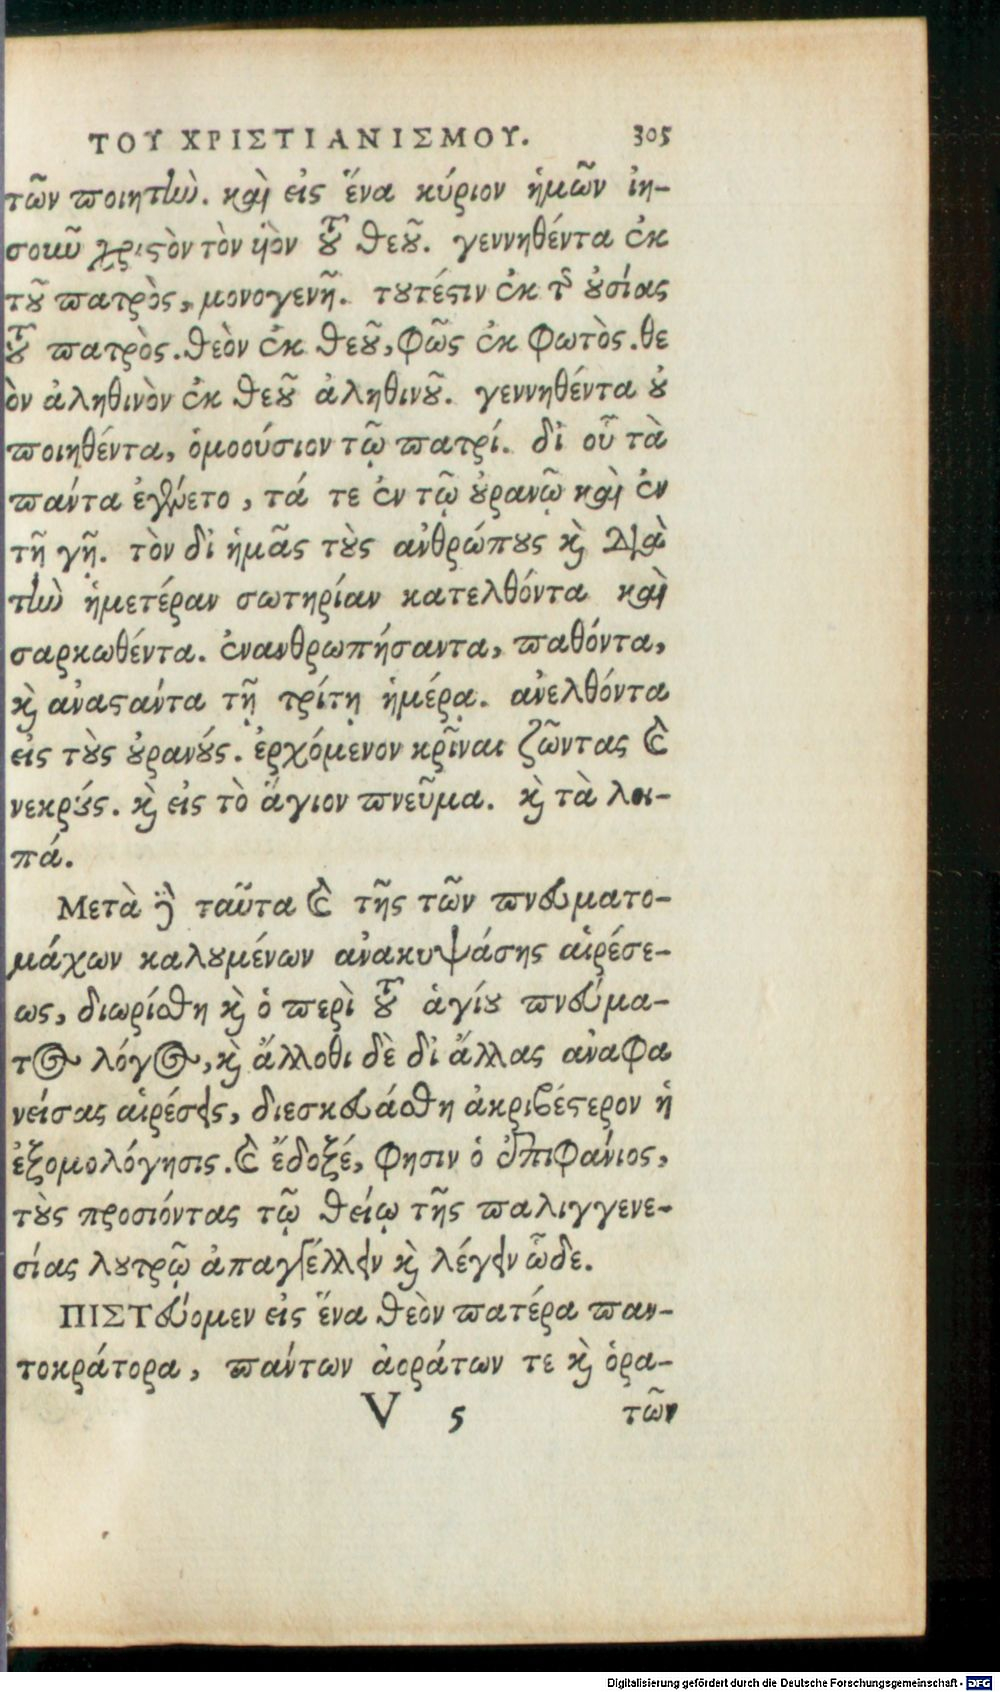 ΤΟΥ ΧΡΙΣΤΙΑΝΙΣΜΟΥ. 305
τῶν ποιητὴν. καὶ εἰς ἕνα κύριον ἡμῶν ἰη-
σοιῦ χριστὸν τὸν ὑὸν τοῦ θεοῦ. γεννηθέντα ἐκ
τοῦ πατρὸς, μονογενῆ. τουτέστιν ἐκ τῆς οὐσίας
τοῦ πατρὸς. θεὸν ἐκ θεοῦ, φῶς ἐκ φωτὸς. θε
ὸν ἀληθινὸν ἐκ θεοῦ ἀληθινοῦ. γεννηθέντα οὐ
ποιηθέντα, ὁμοούσιον τῷ πατρί. δι οὗ τὰ
πάντα ἐγένετο, τά τε ἐν τῷ οὐρανῷ καὶ ἐν
τῇ γῇ. τὸν δι ἡμᾶς τοὺς ἀνθρώπους καὶ διὰ
τὴν ἡμετέραν σωτηρίαν κατελθόντα καὶ
σαρκωθέντα. ἐνανθρωπήσαντα, παθόντα,
καὶ ἀναστάντα τῇ τρίτῃ ἡμέρᾳ. ἀνελθόντα
εἰς τοὺς οὐρανούς. ἐρχόμενον κρῖναι ζῶντας καὶ
νεκρούς. καὶ εἰς τὸ ἅγιον πνεῦμα. καὶ τὰ λοι-
πά.
Μετὰ δὲ ταῦτα καὶ τῆς τῶν πνευματο-
μάχων καλουμένων ἀνακυψάσης αἱρέσε-
ως, διωρίσθη καὶ ὁ περὶ τοῦ ἁγίου πνεύμα-
τος λόγος, καὶ ἄλλοθι δὲ δι ἄλλας ἀναφα
νείσας αἱρέσεις, διεσκευάσθη ἀκριβέστερον ἡ
ἐξομολόγησις. καὶ ἔδοξέ, φησιν ὁ ἐπιφάνιος,
τοὺς προσιόντας τῷ θείῳ τῆς παλιγγενε-
σίας λουτρῷ ἀπαγγέλλειν καὶ λέγειν ὧδε.
ΠΙΣΤεύομεν εἰς ἕνα θεὸν πατέρα παν-
τοκράτορα, πάντων ἀοράτων τε καὶ ὁρα-
V 5 τῶν
Digitalisierung gefördert durch die Deutsche Forschungsgemeinschaft - DFG